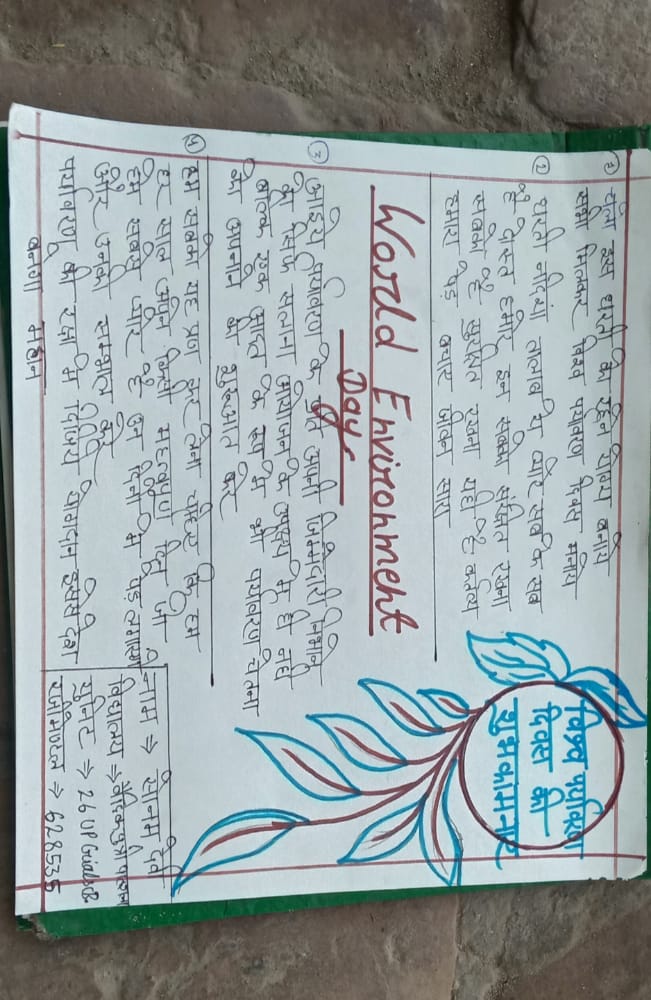 चलो इस धरती को रहने योग्य बनाये
सभी मिलकर विश्व पर्यावरण दिवस मनाये
② धरती नदियां तालाब ये और सब के सब
है दोस्त हमारे इन सबको संरक्षित रखना
सबको है सुरक्षित रखना यही है कर्तव्य
हमारा पेड़ बचाए जीवन सारा
World Environment
Day
③ आईये पर्यावरण के प्रति अपनी जिम्मेदारी निभाने
को सिर्फ सलाना आयोजन के उद्देश्य से ही नहीं
बल्कि एक आदत के रूप में भी पर्यावरण चेतना
को अपनाने की शुरुआत करे
हम सबको यह प्रण कर लेना चाहिए कि हम
हर साल अपने किसी महत्वपूर्ण दिन जो
हमें सबसे प्यारे है उन दिनों में पेड़ लगायेंगे
और उनकी सम्भाल करेंगे
पर्यावरण की रक्षा में दीजिये योगदान इससे देश
बनेगा महान
विश्व पर्यावरण
दिवस की
शुभकामनाएं
नाम ⇒ सोनम देवी
विद्यालय ⇒ वैदिक पुत्री पाठशाला
युनिट ⇒ 26 UP Girls
रजिमेण्टल ⇒ 628535